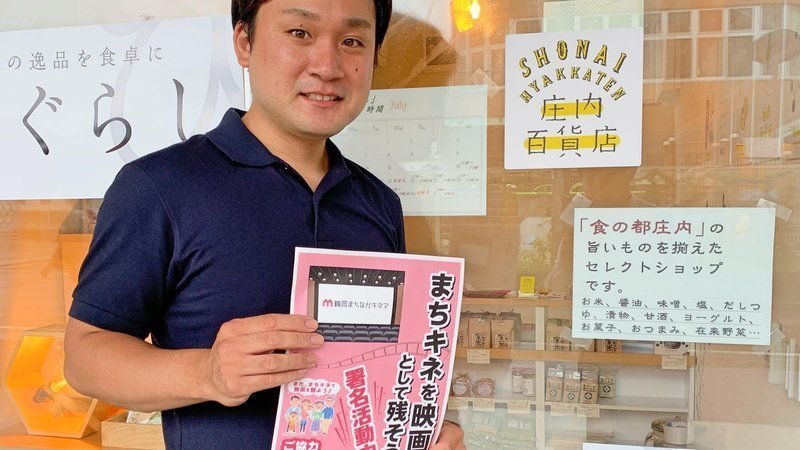 の逸品を食卓に
ぐらし
July
時間
SHONAI
HYAKKATEN
庄内
百貨店
「食の都庄内」の
旨いものを揃えた
セレクトショップ
です。
お米、醤油、味噌、塩、だしつ
ゆ、漬物、甘酒、ヨーグルト、
お菓子、おつまみ、在来野菜…
鶴岡まちなかキネマ
まちキネを映画
として残そう
署名活動
また、まちキネで
映画を観よう♪
ご協力